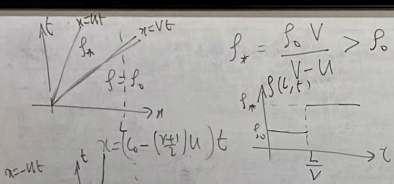 t
x=Ut
x=Vt
ρ*
ρ=ρ₀
x
L
ρ* = ρ₀ V / (V - U) > ρ₀
ρ(L,t)
ρ*
ρ₀
L/V
τ
x = (c₀ - ((γ+1)/2) U) t
x=-Ut
t